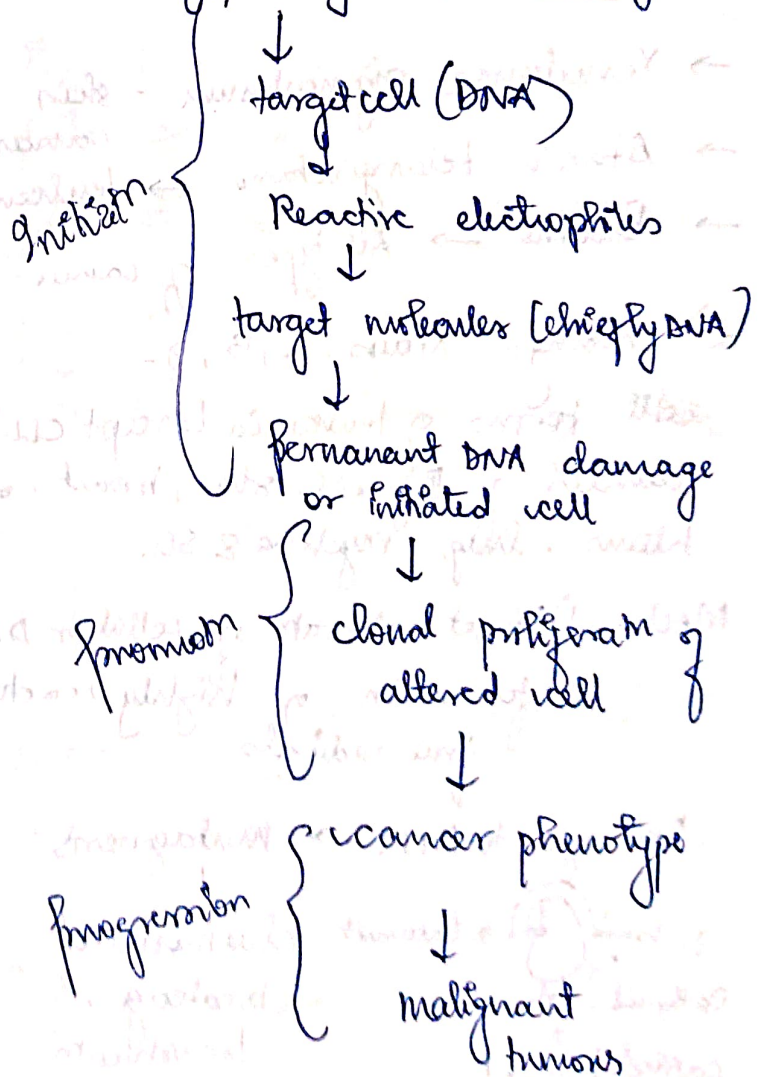 ↓
target cell (DNA)
↓
Reactive electrophiles
↓
target molecules (chiefly DNA)
↓
permanant DNA damage
or initiated cell
Initiatn
↓
clonal proliferatn of
altered cell
promotn
↓
cancer phenotype
↓
malignant
tumors
progression